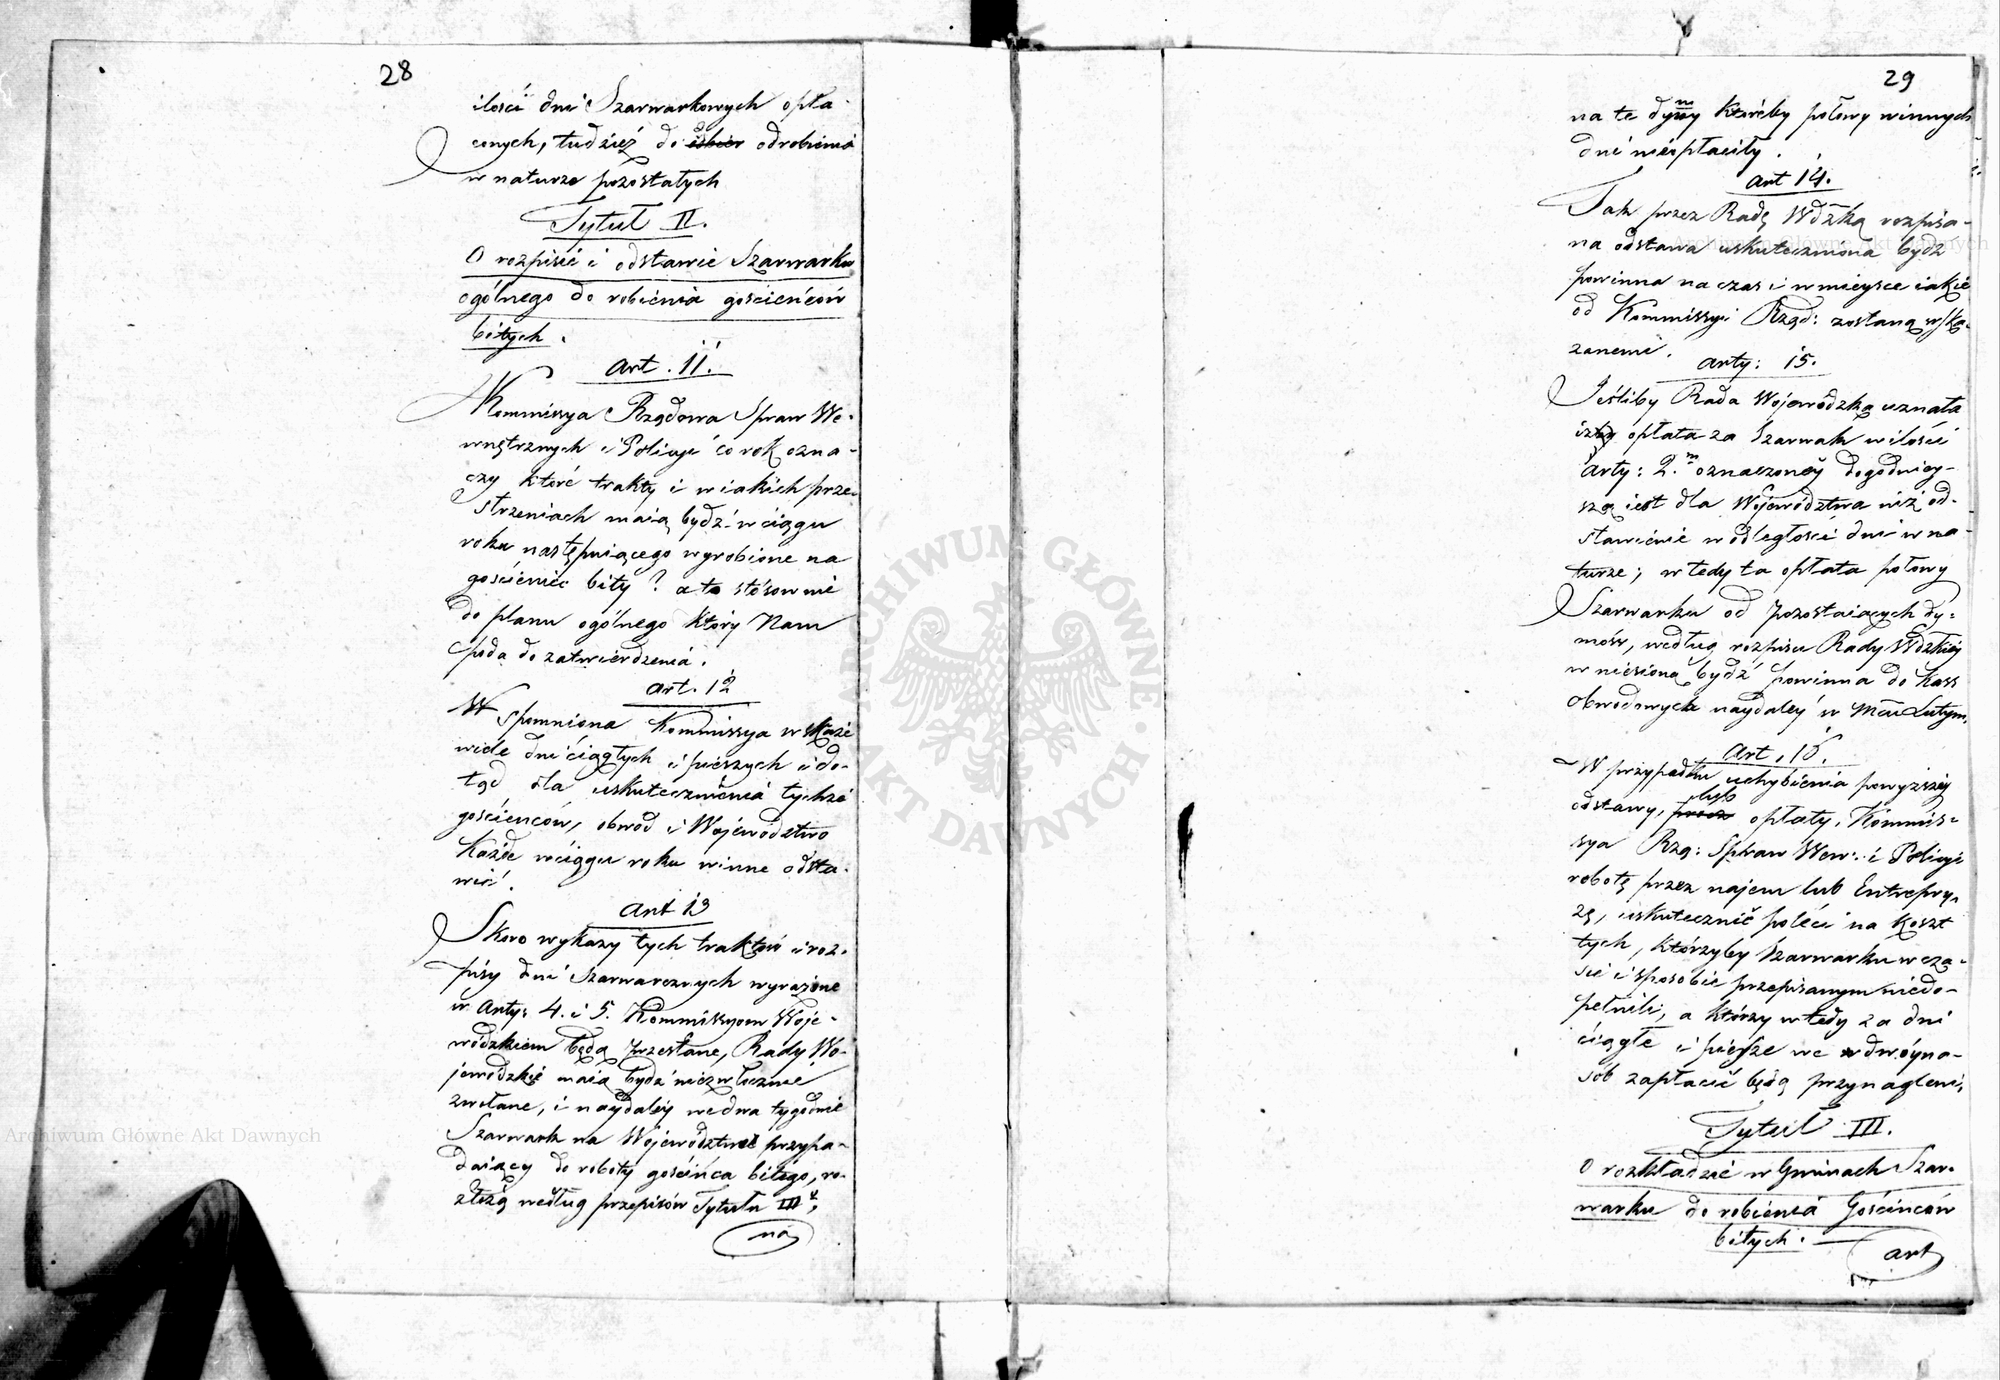 28
ilości dni Szarwarkowych opła-
conych, tudzież do odrobienia
w naturze pozostałych
Tytuł II.
O rozpisie i odstawie Szarwarku
ogólnego do robienia gościńców
bitych.
Art. 11.
Kommissya Rządowa Spraw We-
wnętrznych i Policyi co rok ozna-
czy które trakty i w iakich prze-
strzeniach maią bydź w ciągu
roku następuiącego wyrobione na
gościeniec bity? a to stósownie
do planu ogólnego który Nam
poda do zatwierdzenia.
art. 12
Wspomniona Kommissya wskaże
wiele dni ciągłych i pieszych i do-
tąd dla uskutecznienia tychże
gościenców, obwód i Województwo
każde w ciągu roku winne odsta-
wić.
Art 13
Skoro wykazy tych traktów i roz-
pisy dni Szarwarcznych wyrażone
w Arty: 4. i 5. Kommissyom Woje-
wódzkiem będą przesłane, Rady Wo-
jewodzkie maią bydź niezwłocznie
zwołane, i naydaléy we dwa tygodnie
Szarwark na Województwo przypa-
daiący do roboty gościńca bitego, ro-
złożą według przepisów Tytułu III,
na
29
na te dymy któreby połowy winnych
dni nieopłaciły.
art 14.
Tak przez Radę Wdzką rozpisa-
na odstawa uskuteczniona bydz
powinna na czas i w mieysce iakie
od Kommissyi Rząd: zostaną wska-
zanemi.
arty: 15.
Jeśliby Rada Wojewódzka uznała
iżby opłata za Szarwark w ilości
Arty: 2.m oznaczonéy dogodniey-
szą iest dla Województwa niż od-
stawienie w odległości dni w na-
turze; wtedy ta opłata połowy
Szarwarku od pozostaiących dy-
mów, według rozpisu Rady Wdzkiéy
wniesioną bydź powinna do Kass
Obwodowych naydaléy w Mcu Lutym.
Art. 16.
W przypadku uchybienia powyższéy
odstawy, lub opłaty, Kommis-
sya Rzą: Spraw Wew: i Policyi
robotę przez najem lub Entrepry-
zę, uskutecznić poleci na koszt
tych, którzyby Szarwarku w cza-
sie i sposobie przepisanym niedo-
pełnili, a którzy wtedy za dni
ciągłe i piesze we dwóyna-
sob zapłacić będą przynagleni,
Tytuł III.
O rozkładzie w Gminach Szar-
warku do robienia Gościńców
bitych.
art
Archiwum Główne Akt Dawnych
Archiwum Główne Akt Dawnych
ARCHIWUM GŁÓWNE · AKT DAWNYCH ·